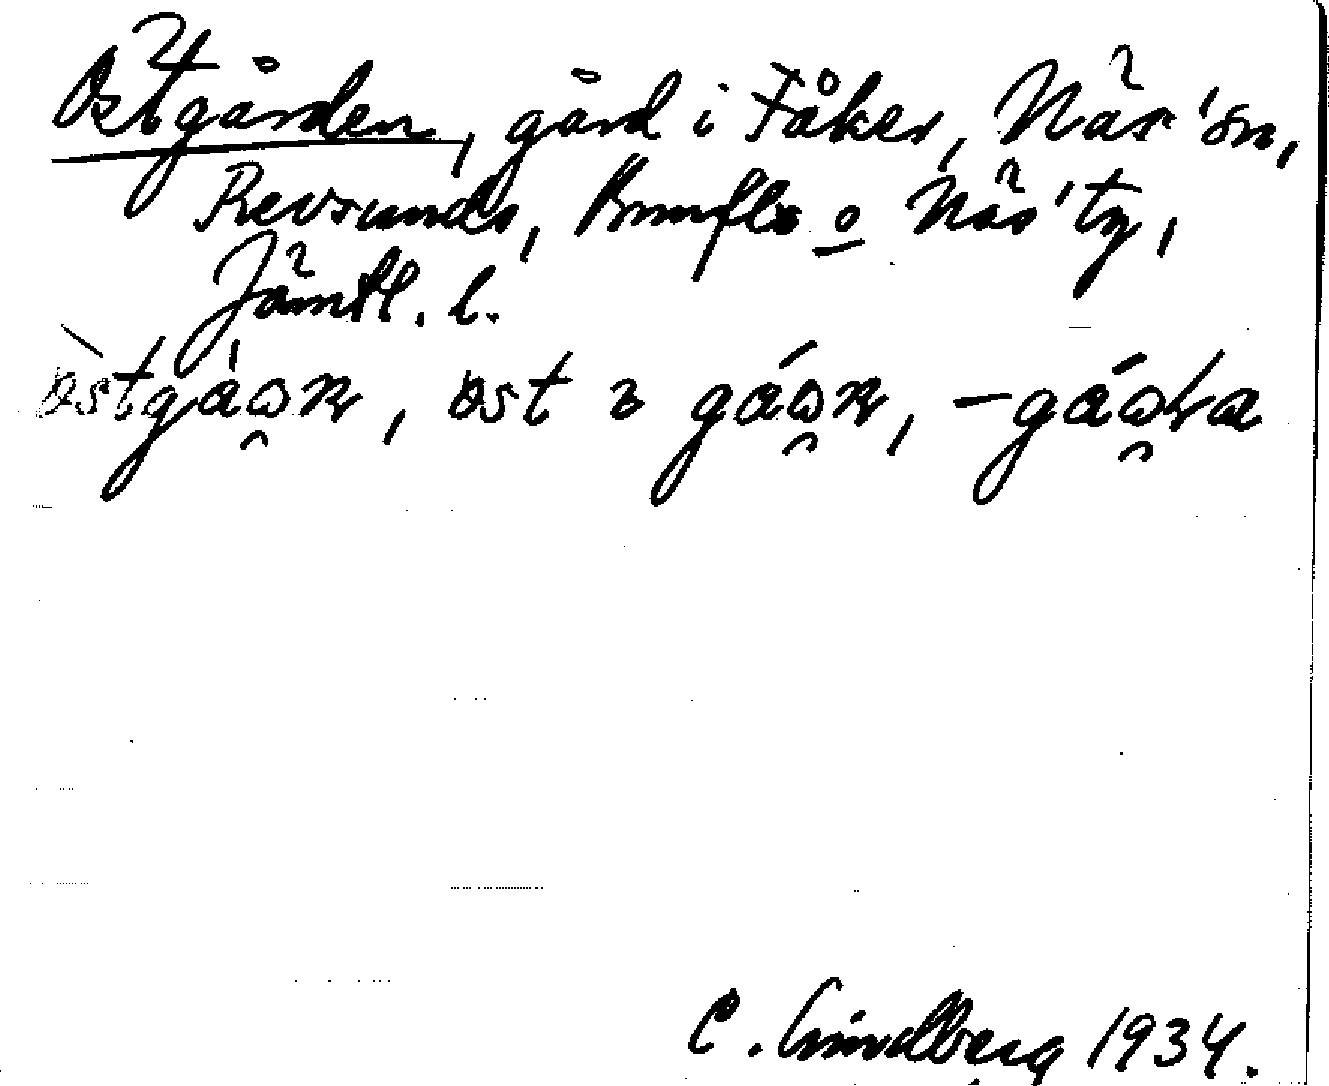 Östgården, gård i Fåker, Näs' sn,
Revsunds, Brunflo o Näs' tg,
Jämtl. l.
östgáɷn, öst ɜ gáɷn, -gáɷɽa
C. Lindberg 1934.